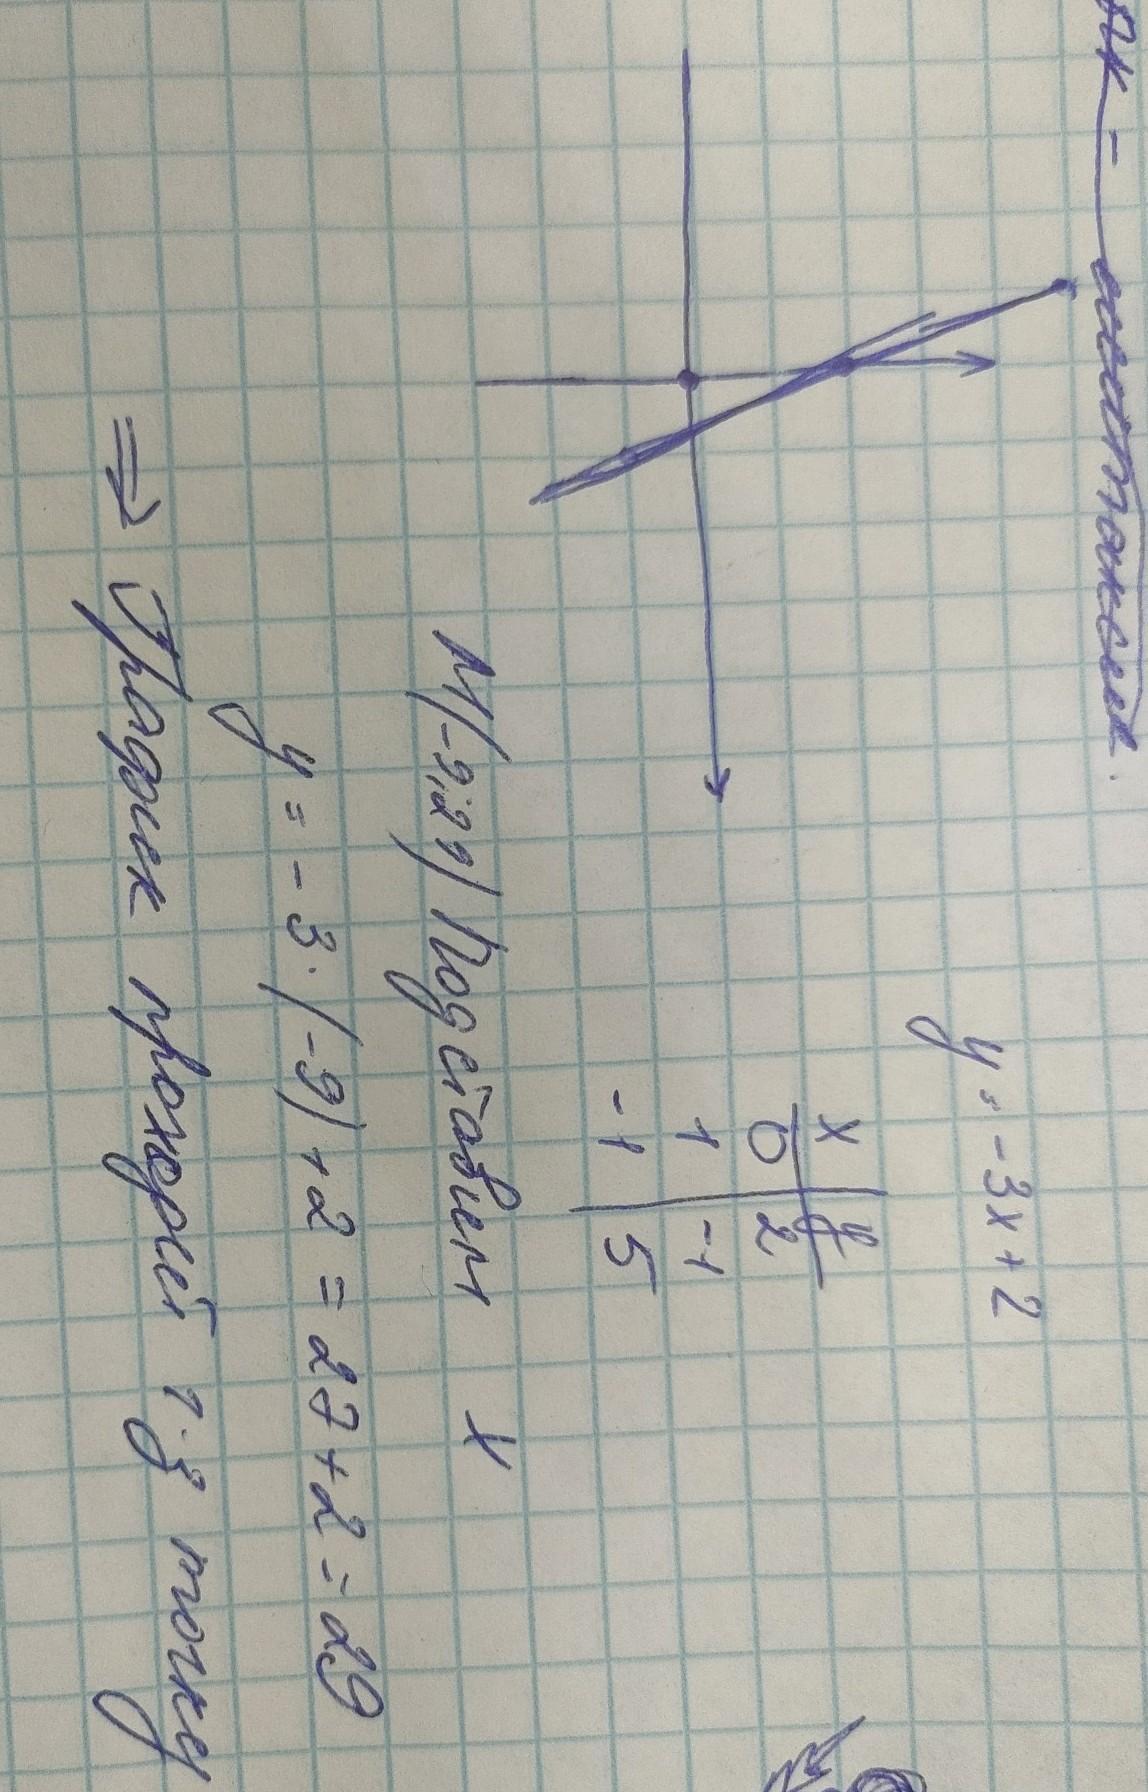 y = -3x + 2
x | y
0 | 2
1 | -1
-1 | 5
M(-9;29) Подставим x
y = -3·(-9)+2 = 27+2=29
⇒ График проходит ч-з точку